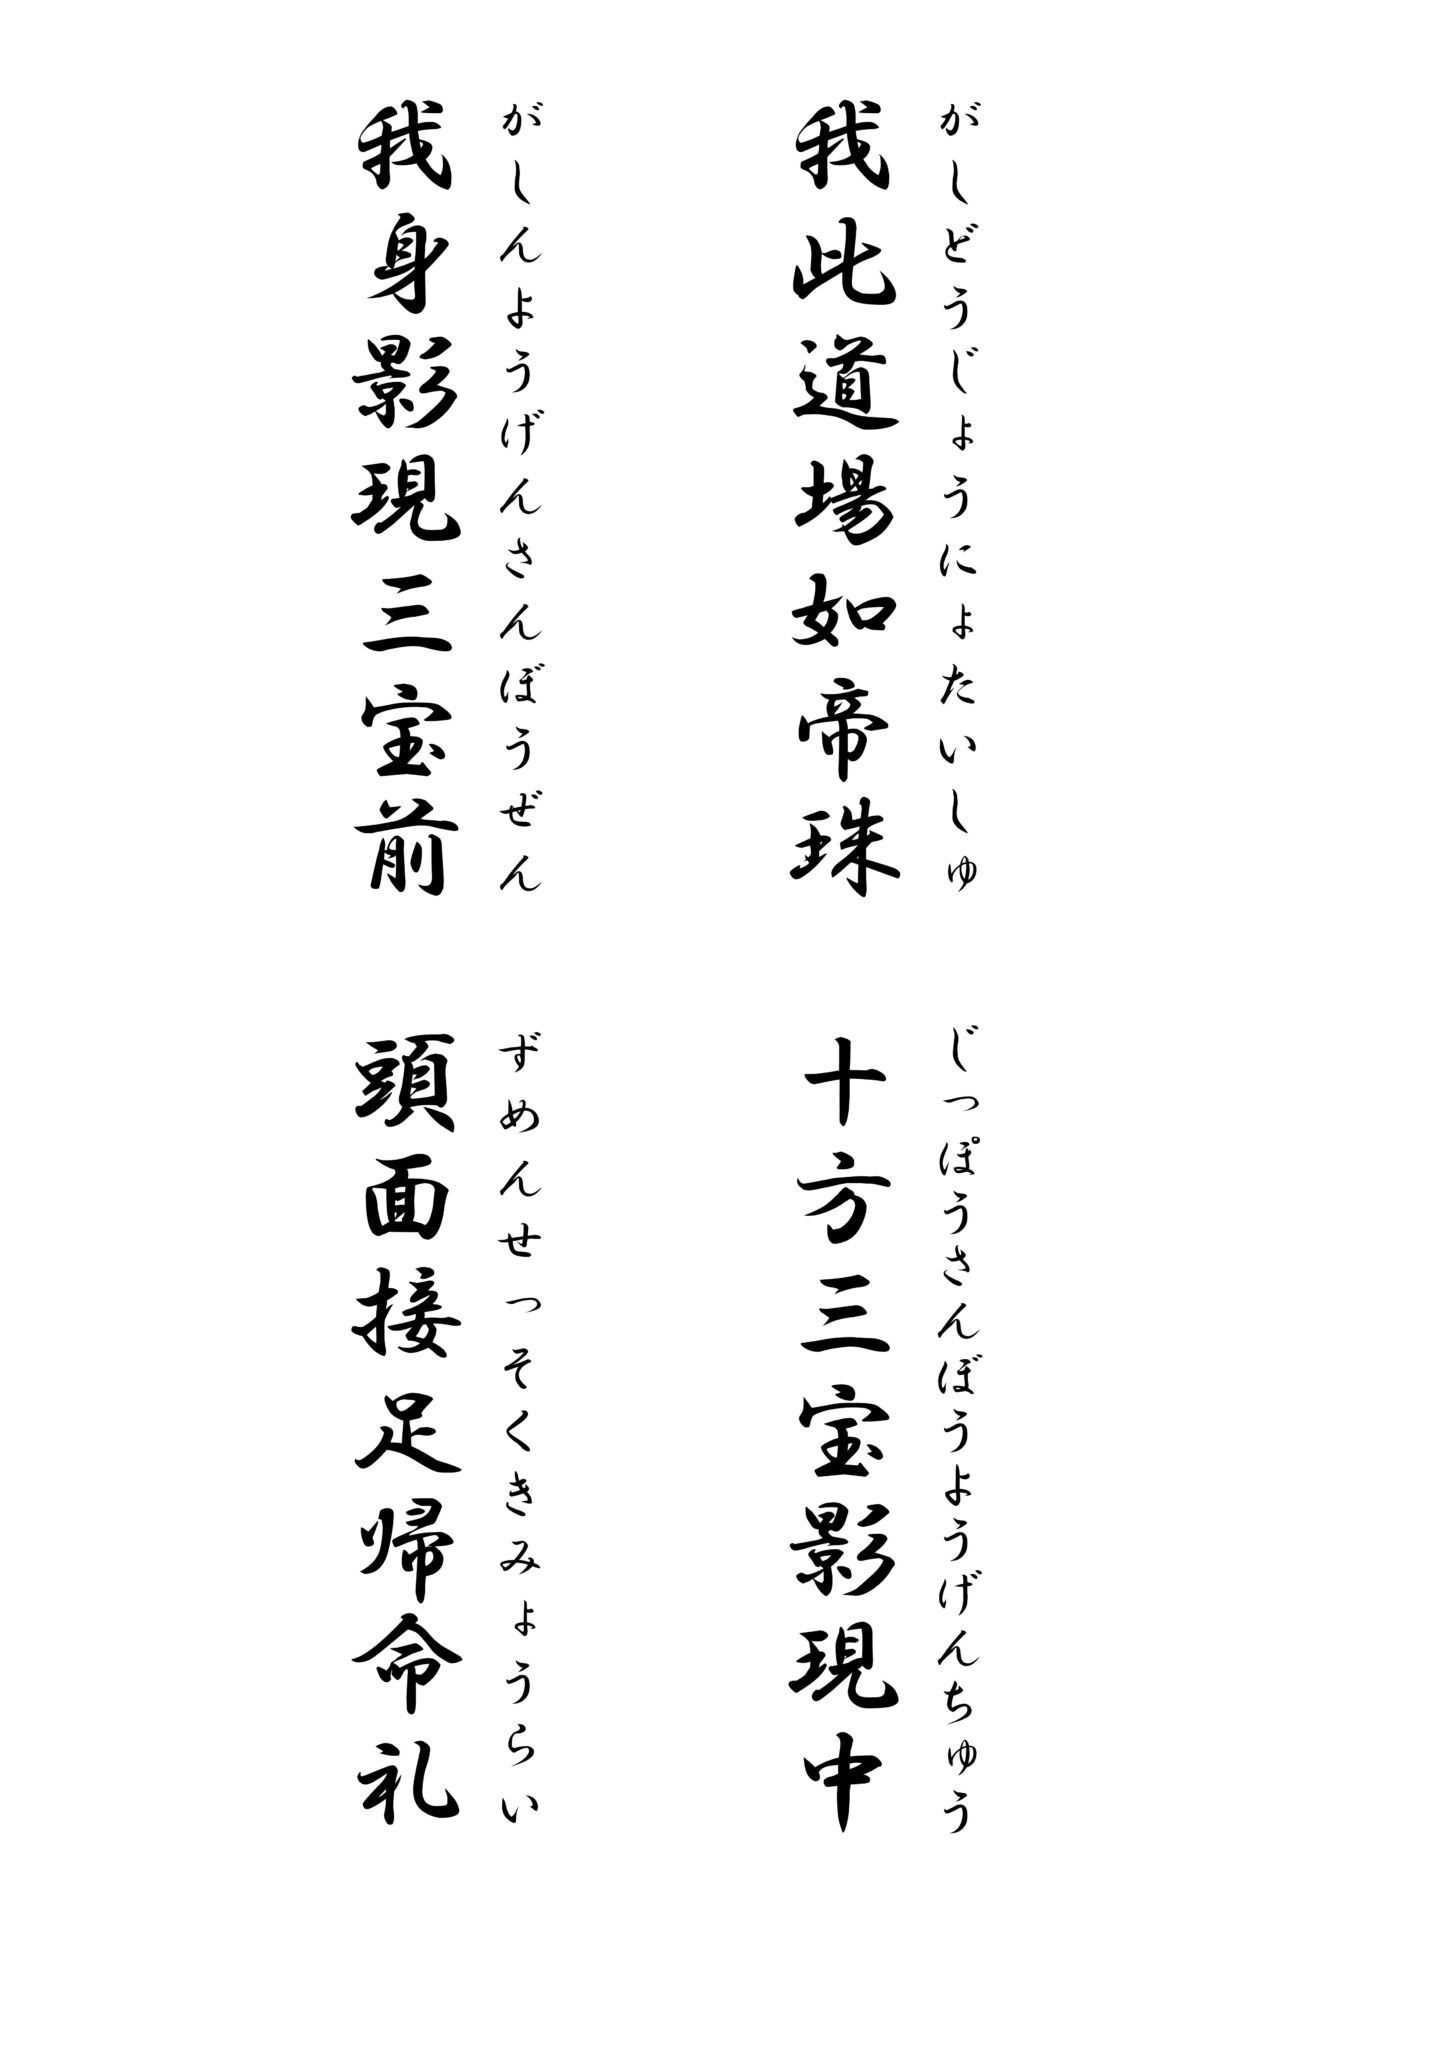 がしどうじょうにょたいしゅ
我此道場如帝珠
じっぽうさんぼうようげんちゅう
十方三宝影現中
がしんようげんさんぼうぜん
我身影現三宝前
ずめんせっそくきみょうらい
頭面接足帰命礼